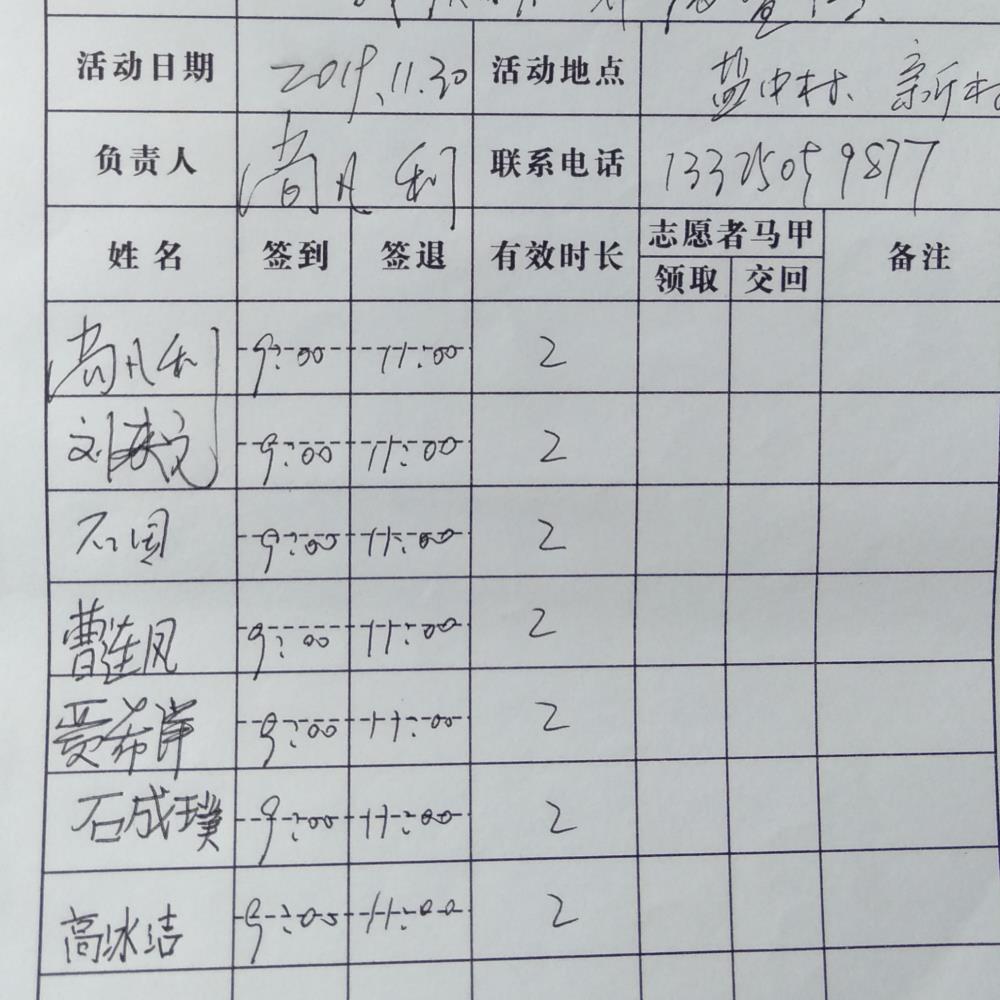 活动日期 2019.11.30 活动地点 盐中村、新村
负责人 尚凡利 联系电话 13325059877
姓名 签到 签退 有效时长 志愿者马甲 备注
领取 交回
尚凡利 9:00 11:00 2
刘 9:00 11:00 2
石国 9:00 11:00 2
曹莲凤 9:00 11:00 2
9:00 11:00 2
石成璞 9:00 11:00 2
高冰洁 9:00 11:00 2